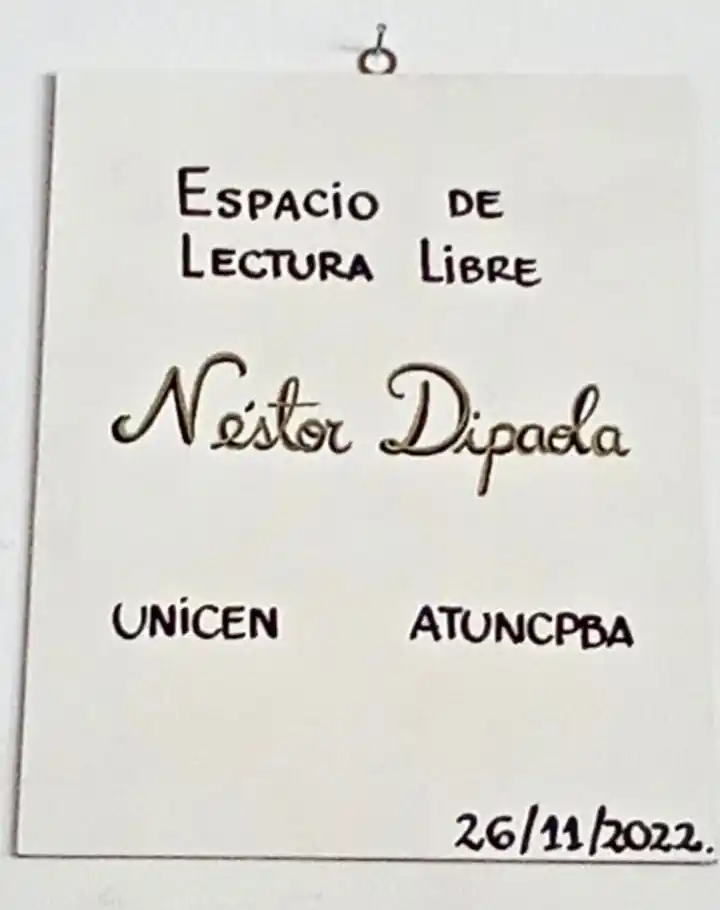 ESPACiO DE
LECTURA LiBRE
Néstor Dipaola
UNiCEN ATUNCPBA
26/11/2022.